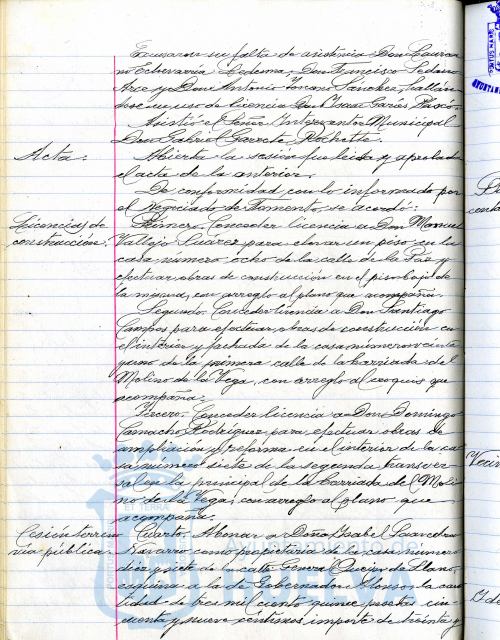 Excusaron su falta de asistencia Don Laurea
no Echevarría Ledesma, Don Francisco Sedano
Arce y Don Antonio Toscano Sánchez, hallán
dose en uso de licencia Don Oscar García
Asistió el Señor Interventor Municipal
Don Gabriel Garreta Rochette.
Acta:
Abierta la sesión fue leida y aprobada
el acta de la anterior.
De conformidad con lo informado por
el Negociado de Fomento, se acordó:
Licencias de
construcción:
Primero. Conceder licencia a Don Manuel
Vallejo Suarez para elevar un piso en la
casa número ocho de la calle de la Paz y
efectuar obras de construcción en el piso bajo de
la misma, con arreglo al plano que acompaña.
Segundo. Conceder licencia a Don Santiago
Campos para efectuar obras de construcción en
el interior y fachada de la casa número veinte
y uno de la primera calle de la barriada del
Molino de la Vega, con arreglo al croquis que
acompaña.
Tercero. Conceder licencia a Don Domingo
Camacho Rodríguez para efectuar obras de
ampliación y reforma en el interior de la ca
sa número siete de la segunda transver
sal en la principal de la barriada del Moli
no de la Vega, con arreglo al plano que
acompaña.
Cesión terreno
vía pública.
Cuarto. Abonar a Doña Isabel
Navarro como propietaria de la casa número
diez y siete de la calle General Queipo de Llano,
esquina a la de Gobernador Alonso, la can
tidad de tres mil ciento quince pesetas cin
cuenta y nueve céntimos importe de treinta y
Ayuntamiento de
HUELVA